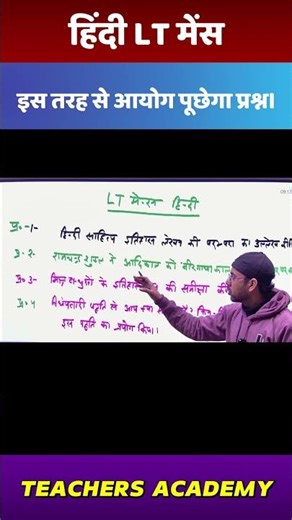 हिंदी LT मेंस
इस तरह से आयोग पूछेगा प्रश्न।
LT मेन्स हिन्दी
प्र०-1- हिन्दी साहित्य इतिहास लेखन की परम्परा का उल्लेख
प्र०-2- रामचन्द्र शुक्ल ने आदिकाल को वीरगाथा काल
प्र०3- मिश्र बन्धुओं के इतिहास की समीक्षा
प्र०4 विधेयवादी पद्धति से आप क्या
इस पद्धति का प्रयोग किया।
TEACHERS ACADEMY